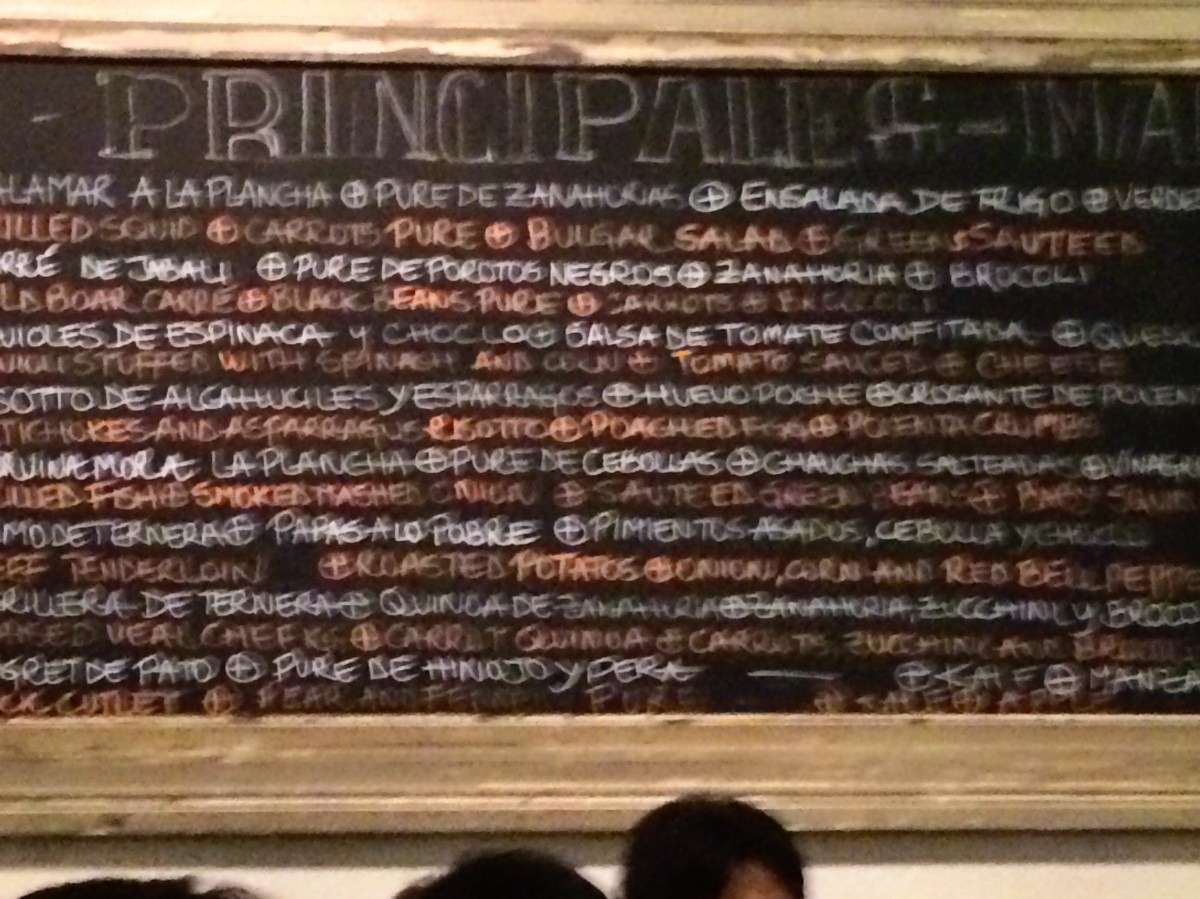 - PRINCIPALES - MA
LAMAR A LA PLANCHA ⊕ PURE DE ZANAHORIAS ⊕ ENSALADA DE TRIGO ⊕ VERDE
ILLED SQUID ⊕ CARROTS PURE ⊕ BULGAR SALAD ⊕ GREENS SAUTEED
RRÉ DE JABALI ⊕ PURE DE POROTOS NEGROS ⊕ ZANAHORIA ⊕ BROCOLI
LD BOAR CARRÉ ⊕ BLACK BEANS PURE ⊕ CARROTS ⊕ BROCCOLI
VIOLES DE ESPINACA Y CHOCLO ⊕ SALSA DE TOMATE CONFITADA ⊕ QUES
STUFFED WITH SPINACH AND CORN ⊕ TOMATO SAUCE ⊕ CHEESE
SOTTO DE ALCAHUCILES Y ESPARRAGOS ⊕ HUEVO POCHE ⊕ CROGANTE DE POLEN
TICHOKES AND ASPARRAGUS RISOTTO ⊕ POACHED EGG ⊕ POLENTA CRUMBS
RVINA MORA LA PLANCHA ⊕ PURE DE CEBOLLAS ⊕ CHAUCHAS SALTEADAS ⊕ VINAGR
ILLED FISH ⊕ SMOKED MASHED ONION ⊕ SAUTEED GREEN BEANS ⊕ BABY
MO DE TERNERA ⊕ PAPAS A LO POBRE ⊕ PIMIENTOS ASADOS, CEBOLLA Y CHOCLO
EF TENDERLOIN ⊕ ROASTED POTATOS ⊕ ONION, CORN AND RED BELL PEPPE
RILLERA DE TERNERA ⊕ QUINOA DE ZANAHORIA ⊕ ZANAHORIA, ZUCCHINI Y BROCO
VEAL CHEEKS ⊕ CARROT QUINOA ⊕ CARROTS, ZUCCHINI AND
GRET DE PATO ⊕ PURE DE HINOJO Y PERA — ⊕ KALE ⊕ MANZA
CK CUTLET ⊕ PEAR AND FENNEL PURE ⊕ KALE ⊕ APPLE